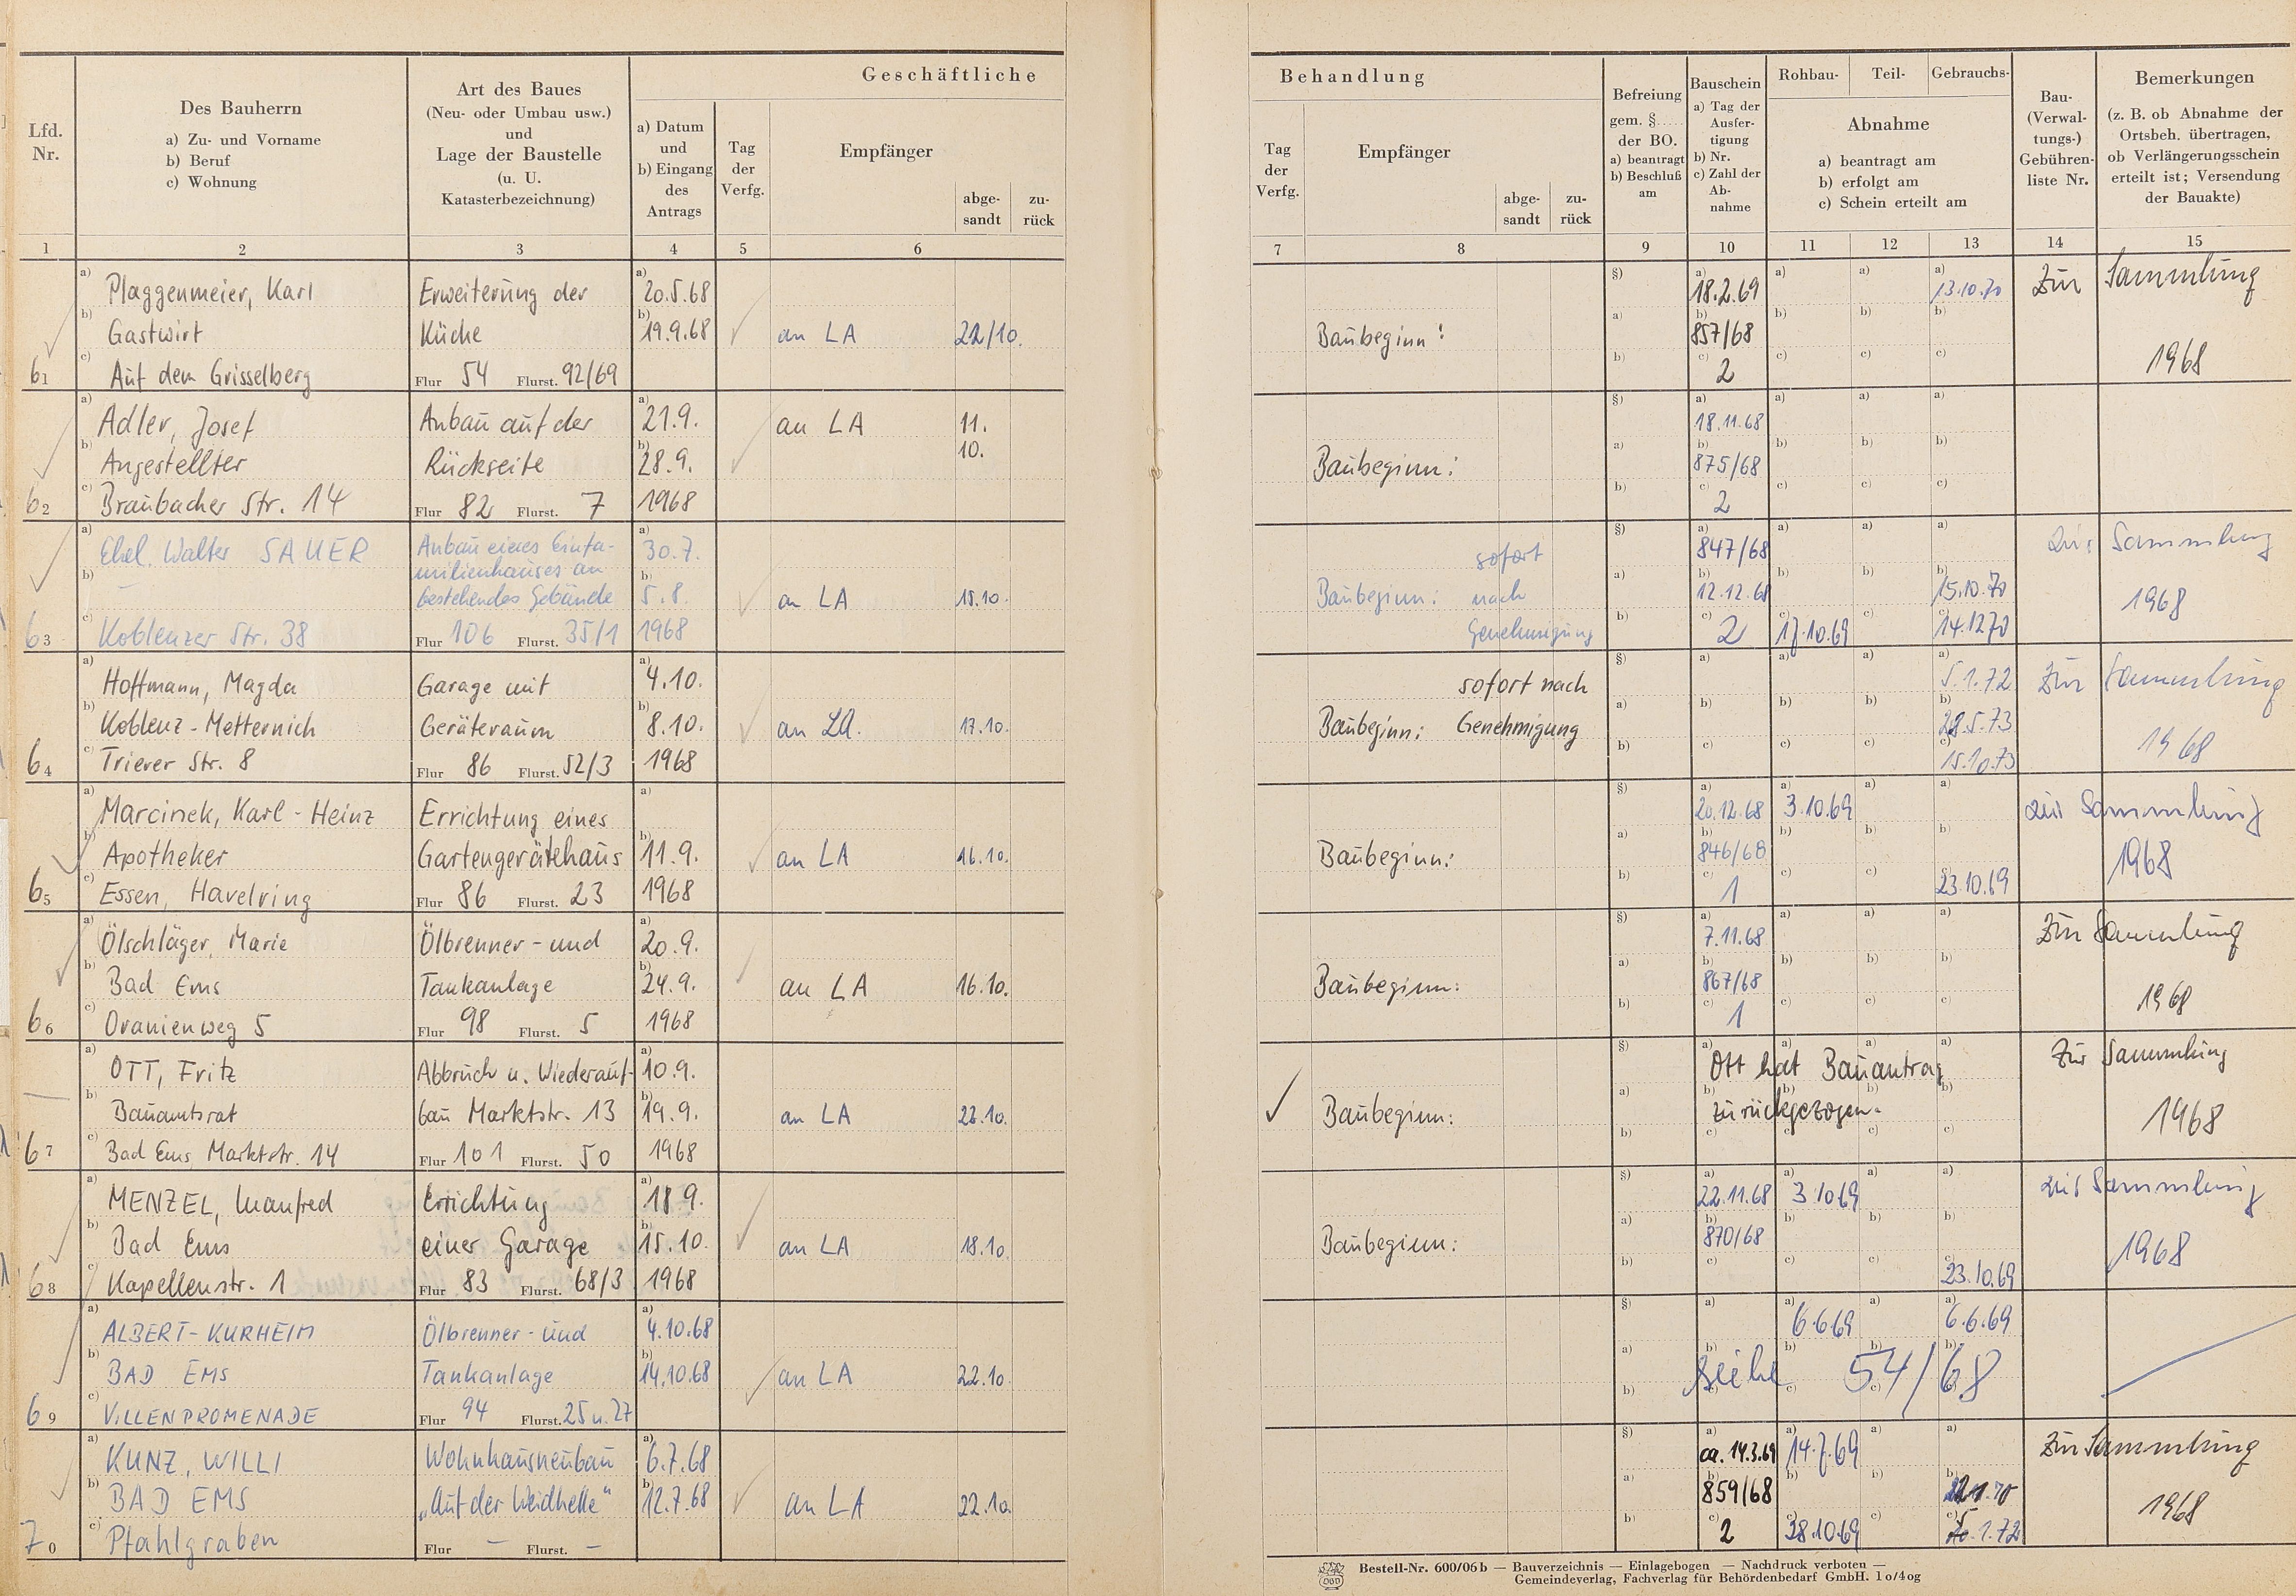 Geschäftliche
Lfd. Nr.
Des Bauherrn
a) Zu- und Vorname
b) Beruf
c) Wohnung
Art des Baues
(Neu- oder Umbau usw.)
und
Lage der Baustelle
(u. U.
Katasterbezeichnung)
a) Datum
und
b) Eingang
des
Antrags
Tag
der
Verfg.
Empfänger
abge-
sandt
zu-
rück
1 2 3 4 5 6
a) Plaggenmeier, Karl Erweiterung der a) 20.5.68
b) Gastwirt Küche b) 19.9.68 an LA 22/10.
61 c) Auf dem Grisselberg Flur 54 Flurst. 92/69
a) Adler, Josef Anbau auf der a) 21.9. an LA 11.
b) Angestellter Rückseite b) 28.9. 10.
62 c) Braubacher Str. 14 Flur 82 Flurst. 7 1968
a) Ehel. Walter SAUER Anbau eines Einfa- a) 30.7.
milienhauses an
b) – bestehendes Gebäude b) 5.8. an LA 15.10.
63 c) Koblenzer Str. 38 Flur 106 Flurst. 35/1 1968
a) Hoffmann, Magda Garage mit a) 4.10.
b) Koblenz-Metternich Geräteraum b) 8.10. an LA. 17.10.
64 c) Trierer Str. 8 Flur 86 Flurst. 52/3 1968
a) Marcinek, Karl-Heinz Errichtung eines a)
b) Apotheker Gartengerätehaus b) 11.9. an LA 16.10.
65 c) Essen, Havelring Flur 86 Flurst. 23 1968
a) Ölschläger, Marie Ölbrenner- und a) 20.9.
b) Bad Ems Tankanlage b) 24.9. an LA 16.10.
66 c) Oranienweg 5 Flur 98 Flurst. 5 1968
a) OTT, Fritz Abbruch u. Wiederauf- a) 10.9.
b) Bauamtsrat bau Marktstr. 13 b) 19.9. an LA 22.10.
67 c) Bad Ems Marktstr. 14 Flur 101 Flurst. 50 1968
a) MENZEL, Manfred Errichtung a) 18.9.
b) Bad Ems einer Garage b) 15.10. an LA 18.10.
68 c) Kapellenstr. 1 Flur 83 Flurst. 68/3 1968
a) ALBERT-KURHEIM Ölbrenner- und a) 4.10.68
b) BAD EMS Tankanlage b) 14.10.68 an LA 22.10.
69 c) VILLENPROMENADE Flur 94 Flurst. 25 u. 27
a) KUNZ, WILLI Wohnhausneubau a) 6.7.68
b) BAD EMS „Auf der Weidhelle" b) 12.7.68 an LA 22.10.
70 c) Pfahlgraben Flur – Flurst. –
Behandlung
Tag
der
Verfg.
Empfänger
abge-
sandt
zu-
rück
Befreiung
gem. §......
der BO.
a) beantragt
b) Beschluß
am
Bauschein
a) Tag der
Ausfer-
tigung
b) Nr.
c) Zahl der
Ab-
nahme
Rohbau- Teil- Gebrauchs-
Abnahme
a) beantragt am
b) erfolgt am
c) Schein erteilt am
Bau-
(Verwal-
tungs-)
Gebühren-
liste Nr.
Bemerkungen
(z. B. ob Abnahme der
Ortsbeh. übertragen,
ob Verlängerungsschein
erteilt ist; Versendung
der Bauakte)
7 8 9 10 11 12 13 14 15
§) a) 18.2.69 a) a) a) 13.10.70 Zur Sammlung
Baubeginn: a) b) 857/68 b) b) b)
b) c) 2 c) c) c) 1968
§) a) 18.11.68 a) a) a)
Baubeginn: a) b) 875/68 b) b) b)
b) c) 2 c) c) c)
sofort §) a) 847/68 a) a) a) zur Sammlung
Baubeginn: nach a) b) 12.12.68 b) b) b) 15.10.70 1968
Genehmigung b) c) 2 c) 17.10.69 c) c) 14.12.70
sofort nach §) a) a) a) a) 5.1.72 Zur Sammlung
Baubeginn: Genehmigung a) b) b) b) b) 28.5.73
b) c) c) c) c) 15.10.73 1968
§) a) 20.12.68 a) 3.10.69 a) a) zur Sammlung
Baubeginn: a) b) 846/68 b) b) b) 1968
b) c) 1 c) c) c) 23.10.69
§) a) 7.11.68 a) a) a) Zur Sammlung
Baubeginn: a) b) 867/68 b) b) b)
b) c) 1 c) c) c) 1968
§) a) Ott hat Bauantrag a) a) a) Zur Sammlung
Baubeginn: a) b) zurückgezogen. b) b) b) 1968
b) c) c) c) c)
§) a) 22.11.68 a) 3.10.69 a) a) zur Sammlung
Baubeginn: a) b) 870/68 b) b) b) 1968
b) c) c) c) c) 23.10.69
§) a) a) 6.6.69 a) a) 6.6.69
a) b) siehe 54/68 b) b) b)
b) c) c) c) c)
§) a) ca. 14.3.69 a) 14.7.69 a) a) Zur Sammlung
a) b) 859/68 b) b) b)
b) c) 2 c) 28.10.69 c) c) 1.72 1968
Bestell-Nr. 600/06 b — Bauverzeichnis — Einlagebogen — Nachdruck verboten —
Gemeindeverlag, Fachverlag für Behördenbedarf GmbH. 1o/4og